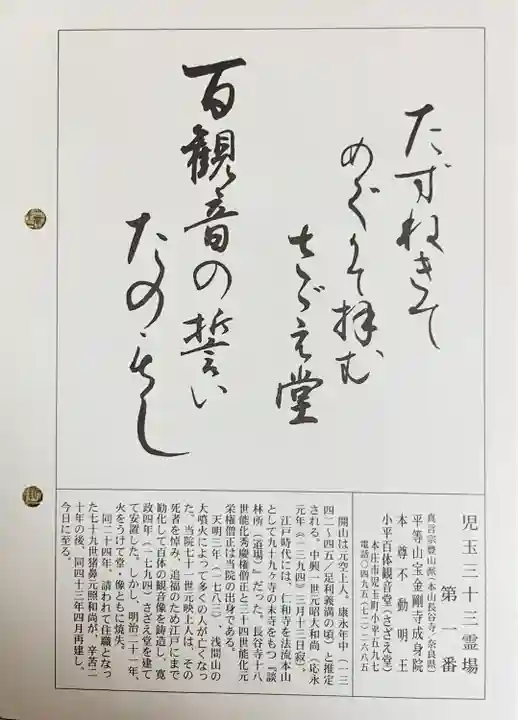 たずねきて
めぐりて拝む
さゞえ堂
百観音の誓い
たのもし
児玉三十三霊場
第一番
真言宗豊山派(本山長谷寺/奈良県)
平等山宝金剛寺成身院
本尊不動明王
小平百体観音堂(さざえ堂)
本庄市児玉町小平五九七
電話〇四九五(七二)二六八五
開山は元空上人。康永年中(一三
四二~四五/足利義満の頃)と推定
される。中興一世元昭大和尚(応永
元年(一三九四)三月十三日寂)。
江戸時代には、仁和寺を法流本山
として九十九ヶ寺の末寺をもつ『談
林所(道場)』だった。長谷寺十八
世能化秀慶権僧正と三十四世能化元
栄権僧正は当院の出身である。
天明三年(一七八三)、浅間山の
大噴火によって多くの人が亡くなっ
た。当院七十一世元映上人は、その
死者を悼み、追福のため江戸にまで
勧化して百体の観音像を鋳造し、寛
政四年(一七九四)さざえ堂を建て
て安置した。しかし、明治二十一年、
火をうけて堂、像ともに焼失。
同二十四年、請われて住職となっ
た七十九世猪鼻元照和尚が、辛苦二
十年の後、同四十三年四月再建し、
今日に至る。